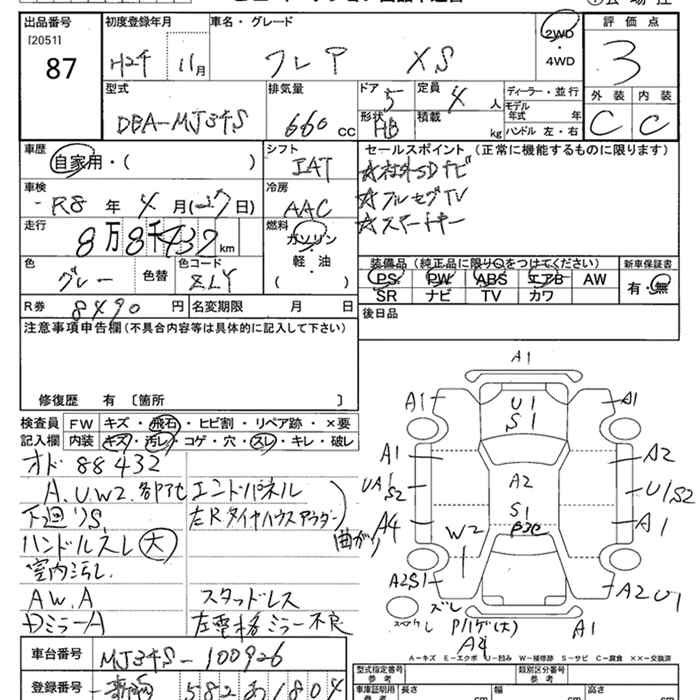 出品番号
[2051]
87
初度登録年月
H24 11月
車名・グレード
フレア XS
2WD
・
4WD
評価点
3
外装 内装
C C
型式
DBA-MJ34S
排気量
660 cc
ドア
5
定員
4 人
形状
HB
積載
kg
ディーラー・並行
モデル年式 年
ハンドル 左・右
車歴
自家用・( )
シフト
IAT
車検
R8年4月(27日)
冷房
AAC
走行
8万8千432km
燃料
ガソリン
・
軽・油
( )
色
グレー
色替
色コード
ZLY
R券 8490円
名変期限 月 日
セールスポイント(正常に機能するものに限ります)
☆社外SDナビ
☆フルセグTV
☆スマートキー
装備品(純正品に限り○をつけてください)
PS PW ABS エアB AW
SR ナビ TV カワ
新車保証書
有・無
後日品
注意事項申告欄(不具合内容等は具体的に記入して下さい)
修復歴 有〔箇所 〕
検査員記入欄
FW キズ・飛石・ヒビ割・リペア跡・×要
内装 キズ・汚レ・コゲ・穴・スレ・キレ・破レ
オド 88432
A.U.W2.各部アセ エンドパネル
下廻りS. 左Rタイヤハウスアウター
曲がり
ハンドルスレ(大)
室内汚れ.
AW.A スタッドレス
Dミラー A 左電格ミラー不良
車台番号 MJ34S-100926
登録番号 582 あ1804
A1
A1 U1 A1
S1
A1 A2 A2
UA1 S2 U1S2
A4 S1 A1
W2
A2S1 A2U1
ズレ
A1
A4
A=キズ E=エクボ U=凹み W=補修跡 S=サビ C=腐食 ××=交換済
型式指定番号
参考
類別区分番号
参考
車庫証明用
参考
長さ 幅 高さ